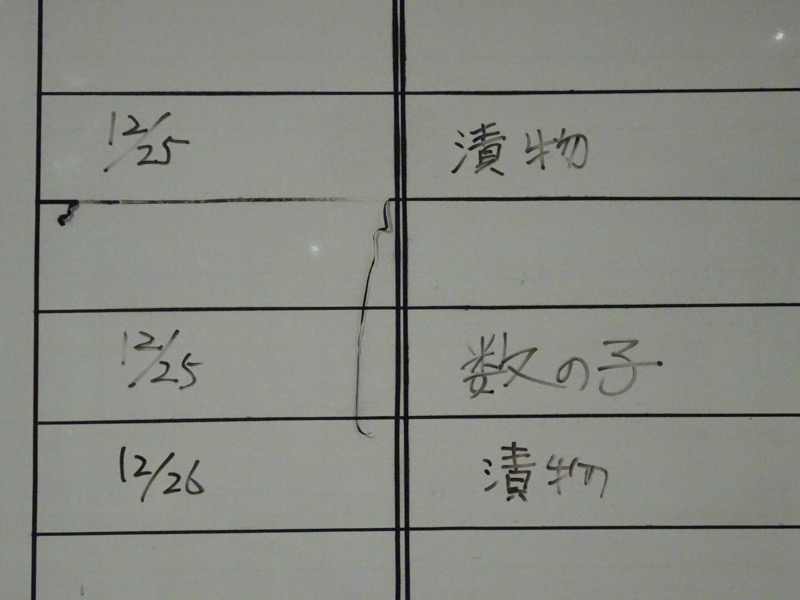 12/25 漬物
12/25 数の子
12/26 漬物